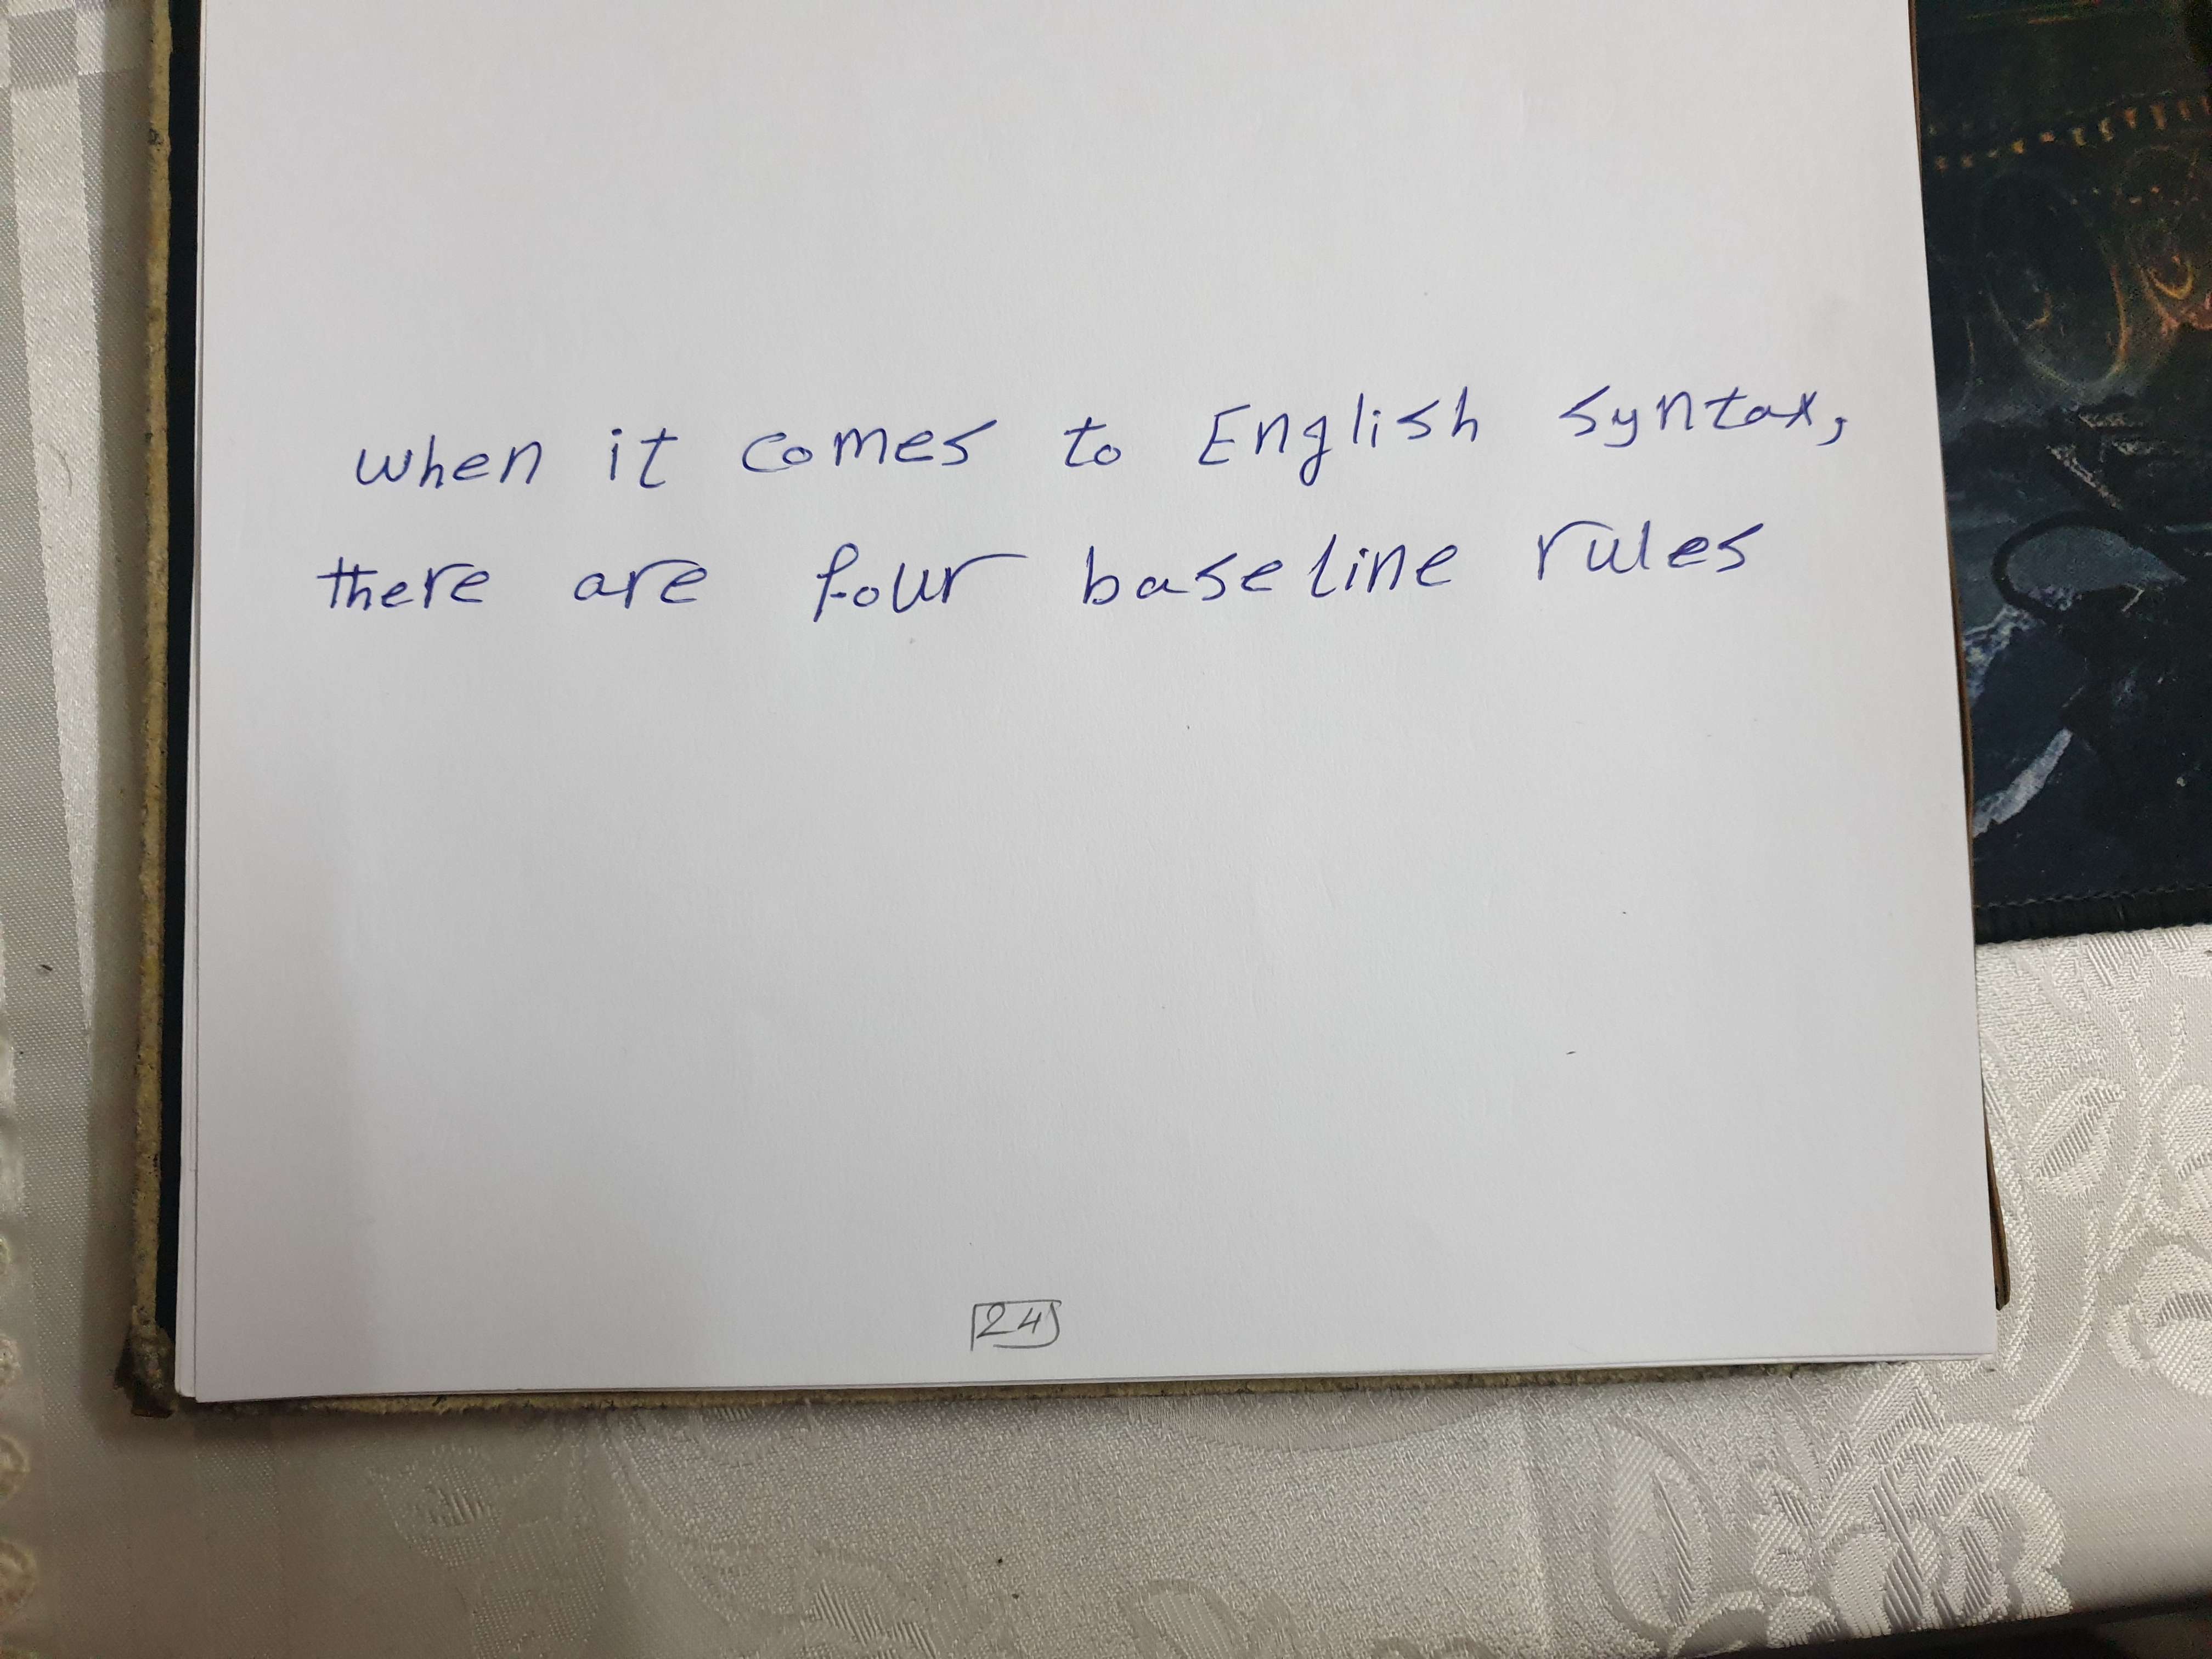 when it comes to English syntax,
there are four baseline rules
24